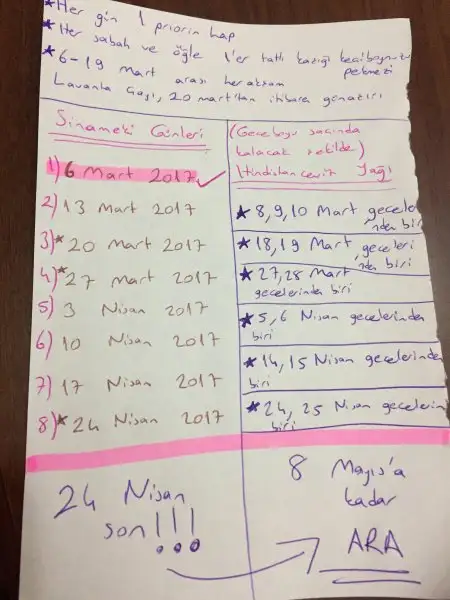 ★Her gün 1 priorin hap
★Her sabah ve öğle 1'er tatlı kaşığı keçiboynuzu
pekmezi
★6-19 Mart arası her akşam
Lavanta Çayı, 20 mart'tan itibare
Sinameki Günleri
1) 6 Mart 2017 ✓
2) 13 Mart 2017
3)★ 20 Mart 2017
4)★ 27 Mart 2017
5) 3 Nisan 2017
6) 10 Nisan 2017
7) 17 Nisan 2017
8)★ 24 Nisan 2017
(Gece boyu saçında
kalacak şekilde)
Hindistancevizi Yağı
★ 8,9,10 Mart gecele
'nden biri
★18,19 Mart geceleri
'nden biri
★27,28 Mart
gecelerinden biri
★5,6 Nisan gecelerinden
biri
★14,15 Nisan gecelerinden
biri
★24, 25 Nisan gecelerin
biri
24 Nisan
son!!!
8 Mayıs'a
kadar
ARA